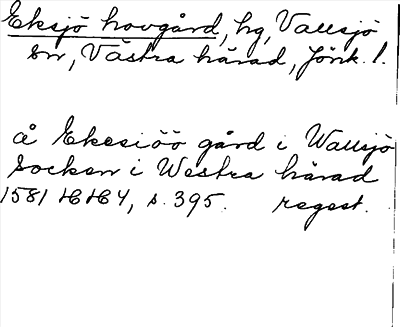 Eksjö hovgård, hg, Vallsjö
sn, Västra härad, Jönk. l.
å Ekesiöö gård i Wallsjö
Socken i Westra härad
1581 HH4, s. 395. regest.